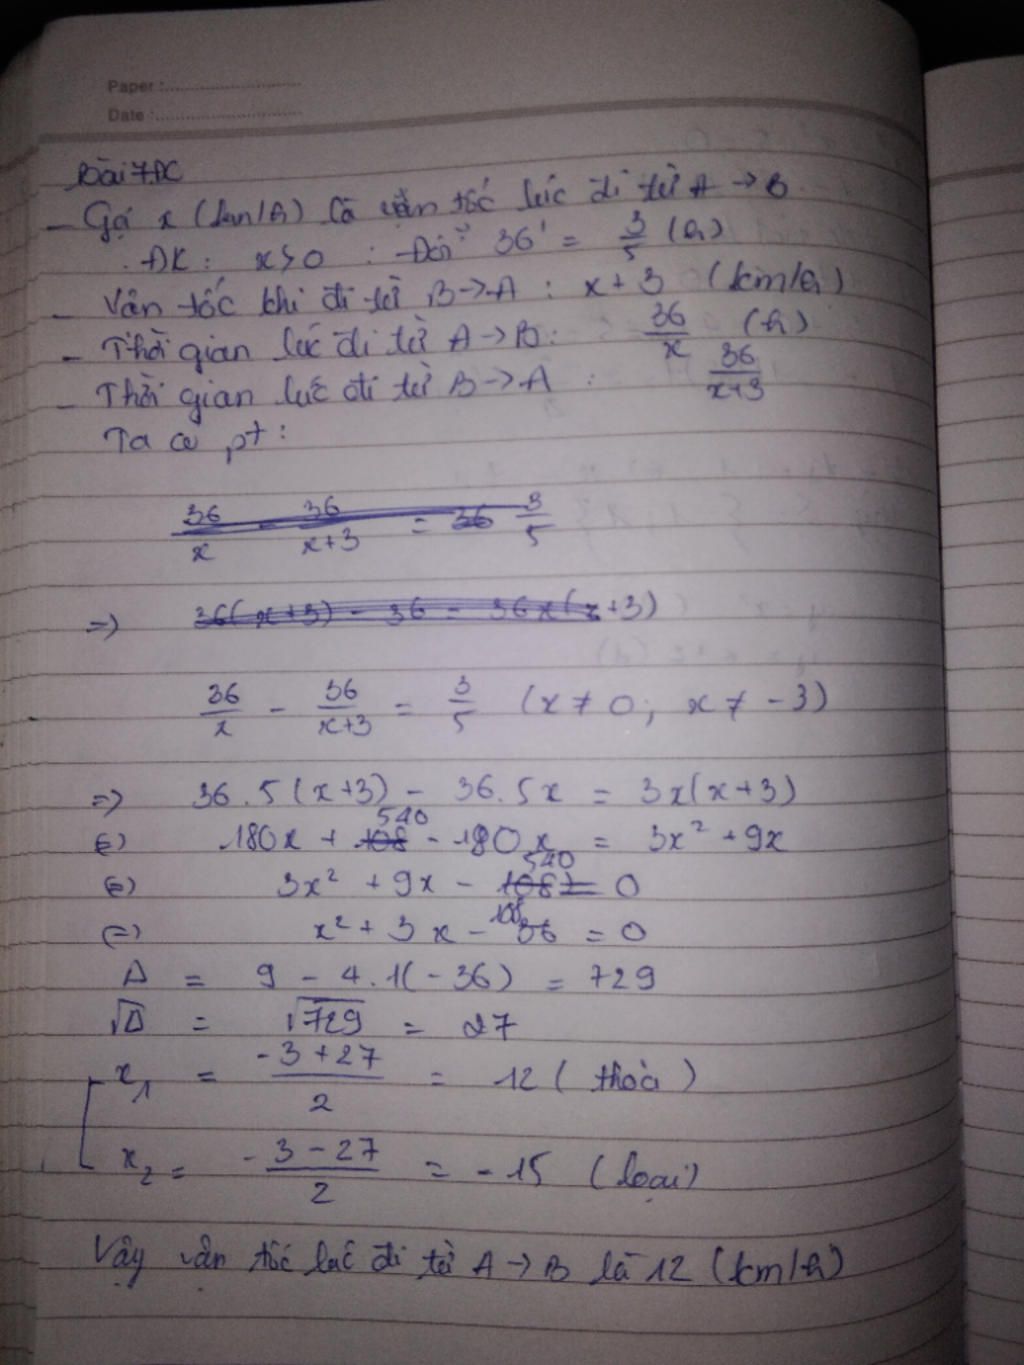 Paper :
Date :
Bài 7 ĐC
- Gọi x (km/h) là vận tốc lúc đi từ A → B
ĐK : x > 0 ; Đổi 36' = 3/5 (h)
- Vận tốc khi đi từ B → A : x + 3 (km/h)
- Thời gian lúc đi từ A → B : 36/x (h)
- Thời gian lúc đi từ B → A : 36/x+3
Ta có pt :
36/x - 36/x+3 = 36 3/5
=> 36(x+3) - 36 = 36x(x+3)
36/x - 36/x+3 = 3/5 (x ≠ 0; x ≠ -3)
=> 36.5(x+3) - 36.5x = 3x(x+3)
(=) 180x + 108 540 - 180x = 3x² + 9x
(=) 3x² + 9x - 108 540 = 0
(=) x² + 3x - 36 108 = 0
Δ = 9 - 4.1(-36) = 729
√Δ = √729 = 27
x₁ = -3+27/2 = 12 (thỏa)
x₂ = -3-27/2 = -15 (loại)
Vậy vận tốc lúc đi từ A → B là 12 (km/h)